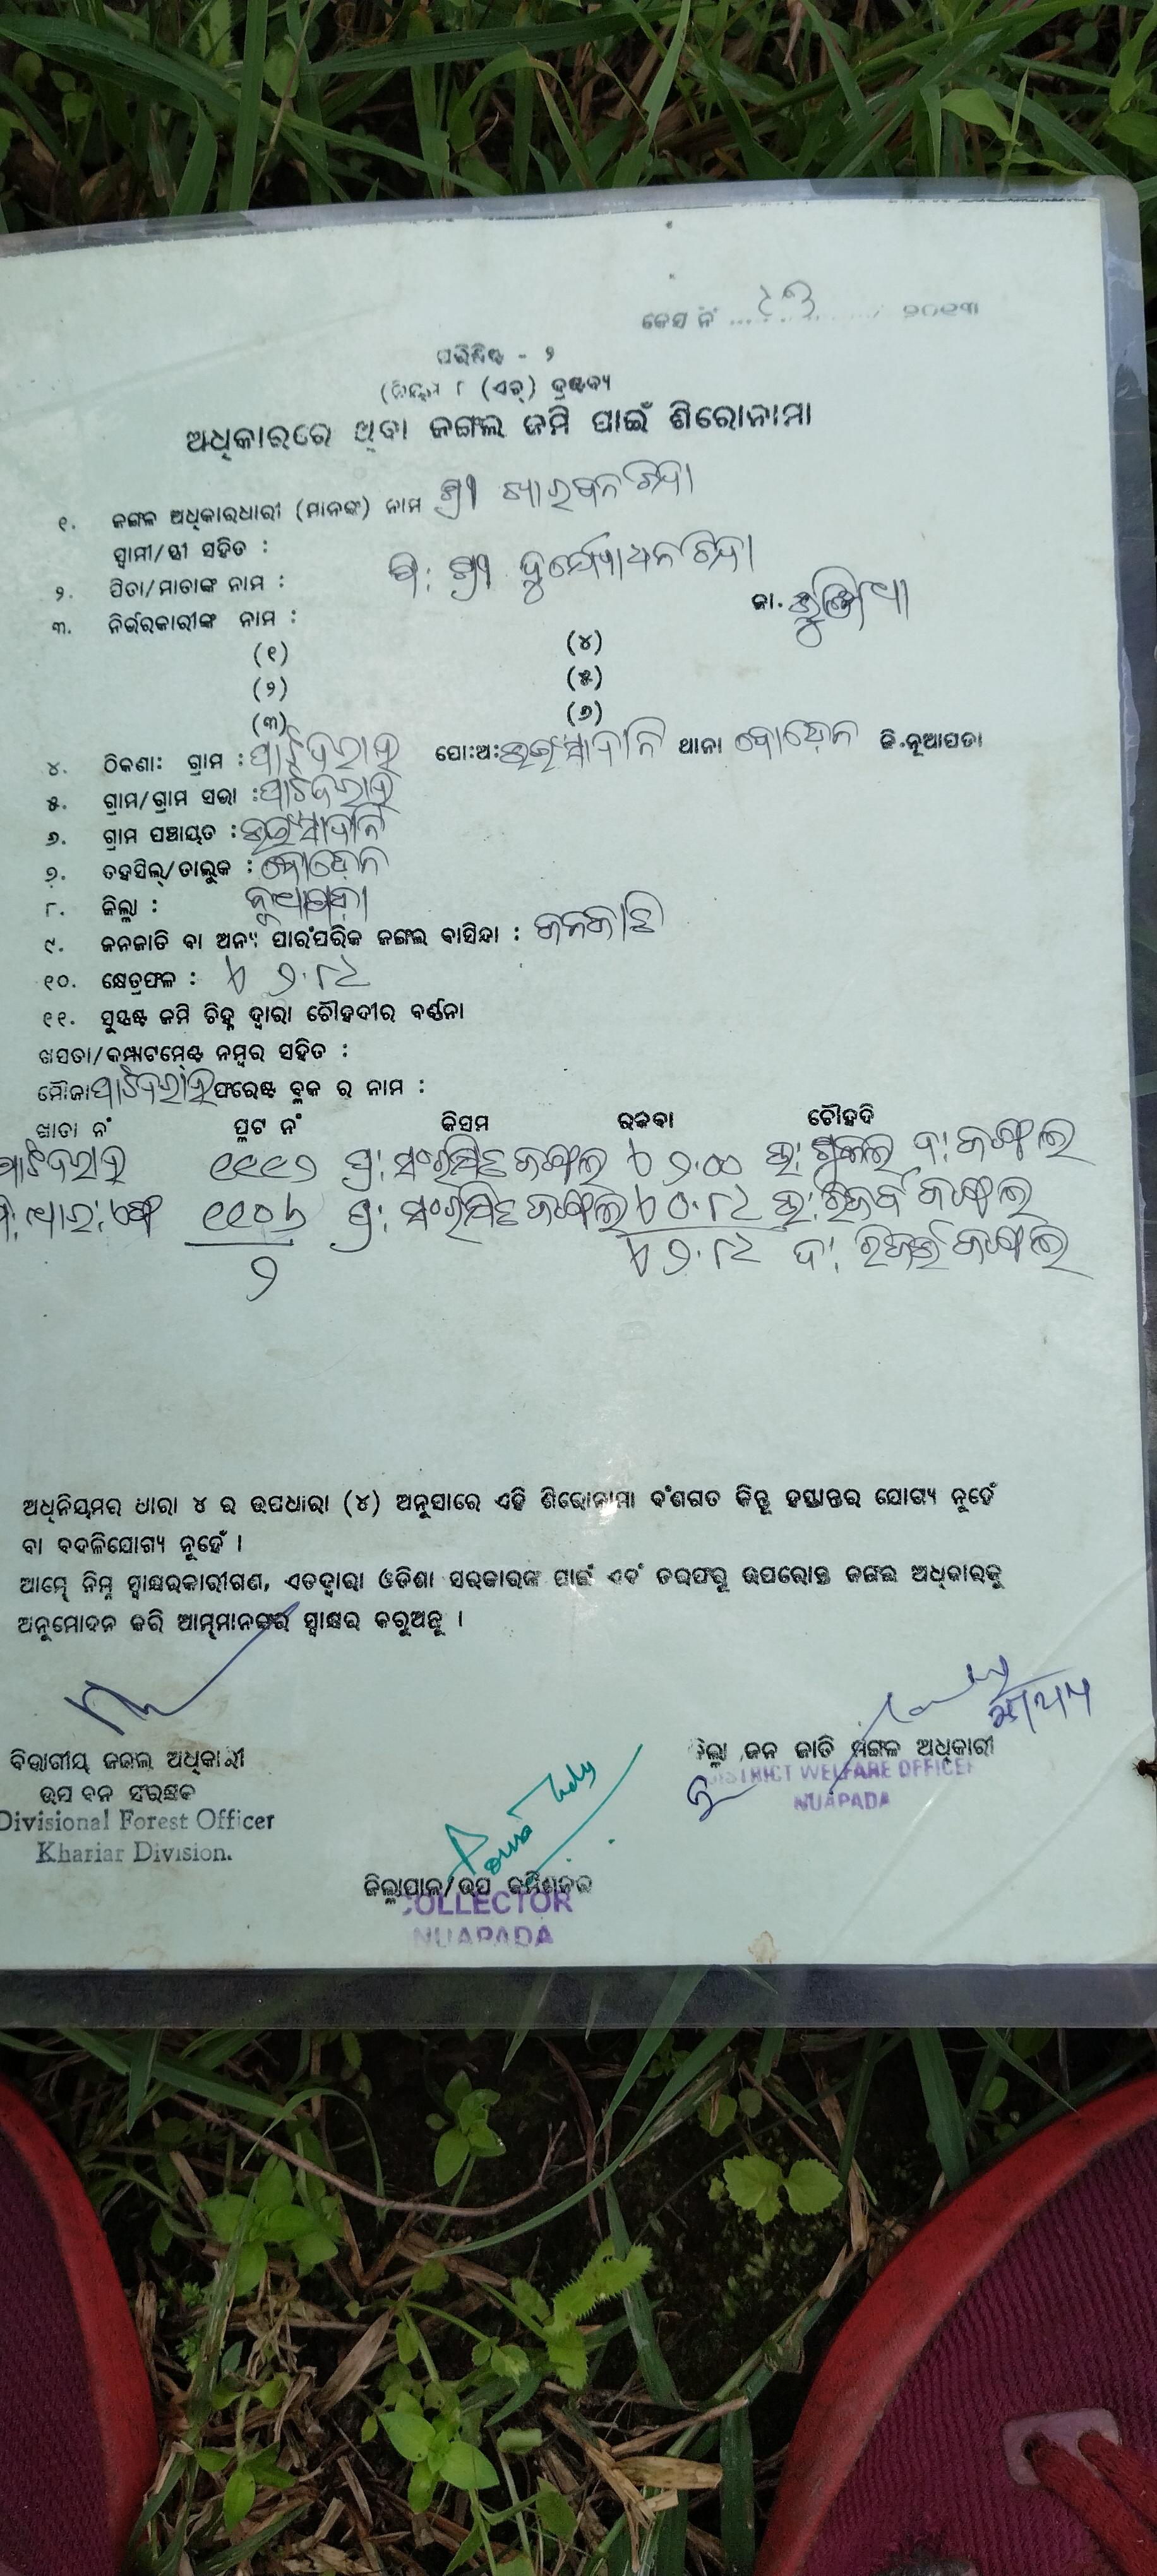 କେସ ନଂ ........... / ୨୦୧୩
ପରିଶିଷ୍ଟ - ୨
(ନିୟମ ୮ (ଏଚ୍) ଦ୍ରଷ୍ଟବ୍ୟ
ଅଧିକାରରେ ଥିବା ଜଙ୍ଗଲ ଜମି ପାଇଁ ଶିରୋନାମା
୧. ଜଙ୍ଗଳ ଅଧିକାରଧାରୀ (ମାନଙ୍କ) ନାମ ଶ୍ରୀ
ସ୍ୱାମୀ/ସ୍ତ୍ରୀ ସହିତ :
୨. ପିତା/ମାତାଙ୍କ ନାମ : ପି: ଶ୍ରୀ ଦୁର୍ଯ୍ୟୋଧନ
ଜା. ଭୁଞ୍ଜିଆ
୩. ନିର୍ଭରକାରୀଙ୍କ ନାମ :
(୧) (୪)
(୨) (୫)
(୩) (୬)
୪. ଠିକଣା: ଗ୍ରାମ : ପାଟଦରାହ ପୋ:ଅ: ଥାନା ବୋଡେନ ଜି.ନୂଆପଡା
୫. ଗ୍ରାମ/ଗ୍ରାମ ସଭା : ପାଟଦରାହ
୬. ଗ୍ରାମ ପଞ୍ଚାୟତ :
୭. ତହସିଲ୍/ତାଲୁକ : ବୋଡେନ
୮. ଜିଲ୍ଲା : ନୂଆପଡା
୯. ଜନଜାତି ବା ଅନ୍ୟ ପାରଂପରିକ ଜଙ୍ଗଲ ବାସିନ୍ଦା : ଜନଜାତି
୧୦. କ୍ଷେତ୍ରଫଳ : ୨.୮୪
୧୧. ସୁସ୍ପଷ୍ଟ ଜମି ଚିହ୍ନ ଦ୍ୱାରା ଚୌହଦୀର ବର୍ଣ୍ଣନା
ଖସଡା/କମ୍ପାଟମେଣ୍ଟ ନମ୍ବର ସହିତ :
ମୌଜା ପାଟଦରାହ ଫରେଷ୍ଟ ବ୍ଲକ ର ନାମ :
ଖାତା ନଂ ପ୍ଲଟ ନଂ କିସମ ରକବା ଚୌହଦି
ପାଟଦରାହ ପ୍ର: ସଂରକ୍ଷିତ ଜଙ୍ଗଲ ୨.୦୦ ଉ: ଦ: ଜଙ୍ଗଲ
ପ୍ର: ସଂରକ୍ଷିତ ଜଙ୍ଗଲ ୦.୮୪ ଉ: ରିଜର୍ଭ ଜଙ୍ଗଲ
୨ ୨.୮୪ ଦ: ରିଜର୍ଭ ଜଙ୍ଗଲ
ଅଧିନିୟମର ଧାରା ୪ ର ଉପଧାରା (୪) ଅନୁସାରେ ଏହି ଶିରୋନାମା ବଂଶଗତ କିନ୍ତୁ ହସ୍ତାନ୍ତର ଯୋଗ୍ୟ ନୁହେଁ
ବା ବଦଳିଯୋଗ୍ୟ ନୁହେଁ ।
ଆମ୍ଭେ ନିମ୍ନ ସ୍ୱାକ୍ଷରକାରୀଗଣ, ଏତଦ୍ୱାରା ଓଡିଶା ସରକାରଙ୍କ ପାଇଁ ଏବଂ ତରଫରୁ ଉପରୋକ୍ତ ଜଙ୍ଗଲ ଅଧିକାରକୁ
ଅନୁମୋଦନ କରି ଆମ୍ଭମାନଙ୍କର ସ୍ୱାକ୍ଷର କରୁଅଛୁ ।
ବିଭାଗୀୟ ଜଙ୍ଗଲ ଅଧିକାରୀ
ଉପ ବନ ସଂରକ୍ଷକ
Divisional Forest Officer
Khariar Division.
ଜିଲ୍ଲା ଜନ ଜାତି ମଙ୍ଗଳ ଅଧିକାରୀ
DISTRICT WELFARE OFFICER
NUAPADA
ଜିଲ୍ଲାପାଳ/ଉପ କମିଶନର
COLLECTOR
NUAPADA